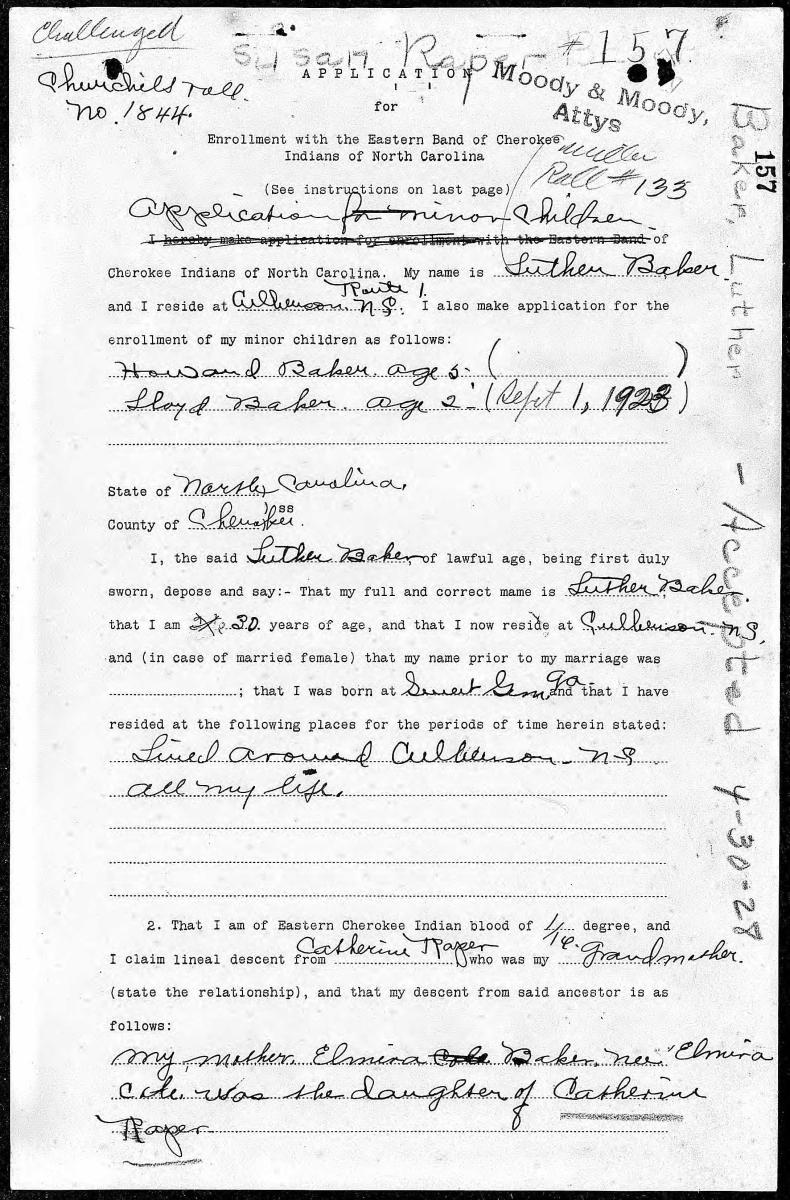 Challenged
Susan Raper #157
Churchill's roll.
No. 1844.
APPLICATION
Moody & Moody,
Attys
for
Enrollment with the Eastern Band of Cherokee
Indians of North Carolina
Miller
Roll # 133
(See instructions on last page)
Application for minor Children
I hereby make application for enrollment with the Eastern Band of
Cherokee Indians of North Carolina. My name is Luther Baker
Route 1.
and I reside at Culberson N.C. I also make application for the
enrollment of my minor children as follows:
Howard Baker. age 5- ( )
Lloyd Baker. age 2- (Sept 1, 1923)
State of North Carolina.
ss
County of Cherokee.
I, the said Luther Baker of lawful age, being first duly
sworn, depose and say:- That my full and correct mame is Luther Baker.
that I am 30 years of age, and that I now reside at Culberson N.C.
and (in case of married female) that my name prior to my marriage was
; that I was born at Sweet Gum Ga. and that I have
resided at the following places for the periods of time herein stated:
Lived around Culberson - N.C.
all my life.
2. That I am of Eastern Cherokee Indian blood of 1/16 degree, and
I claim lineal descent from Catherine Raper who was my Grandmother.
(state the relationship), and that my descent from said ancestor is as
follows:
My mother Elmira Cole Baker. nee Elmira
Cole was the daughter of Catherine
Raper
157
Baker, Luther - Accepted 4-30-28